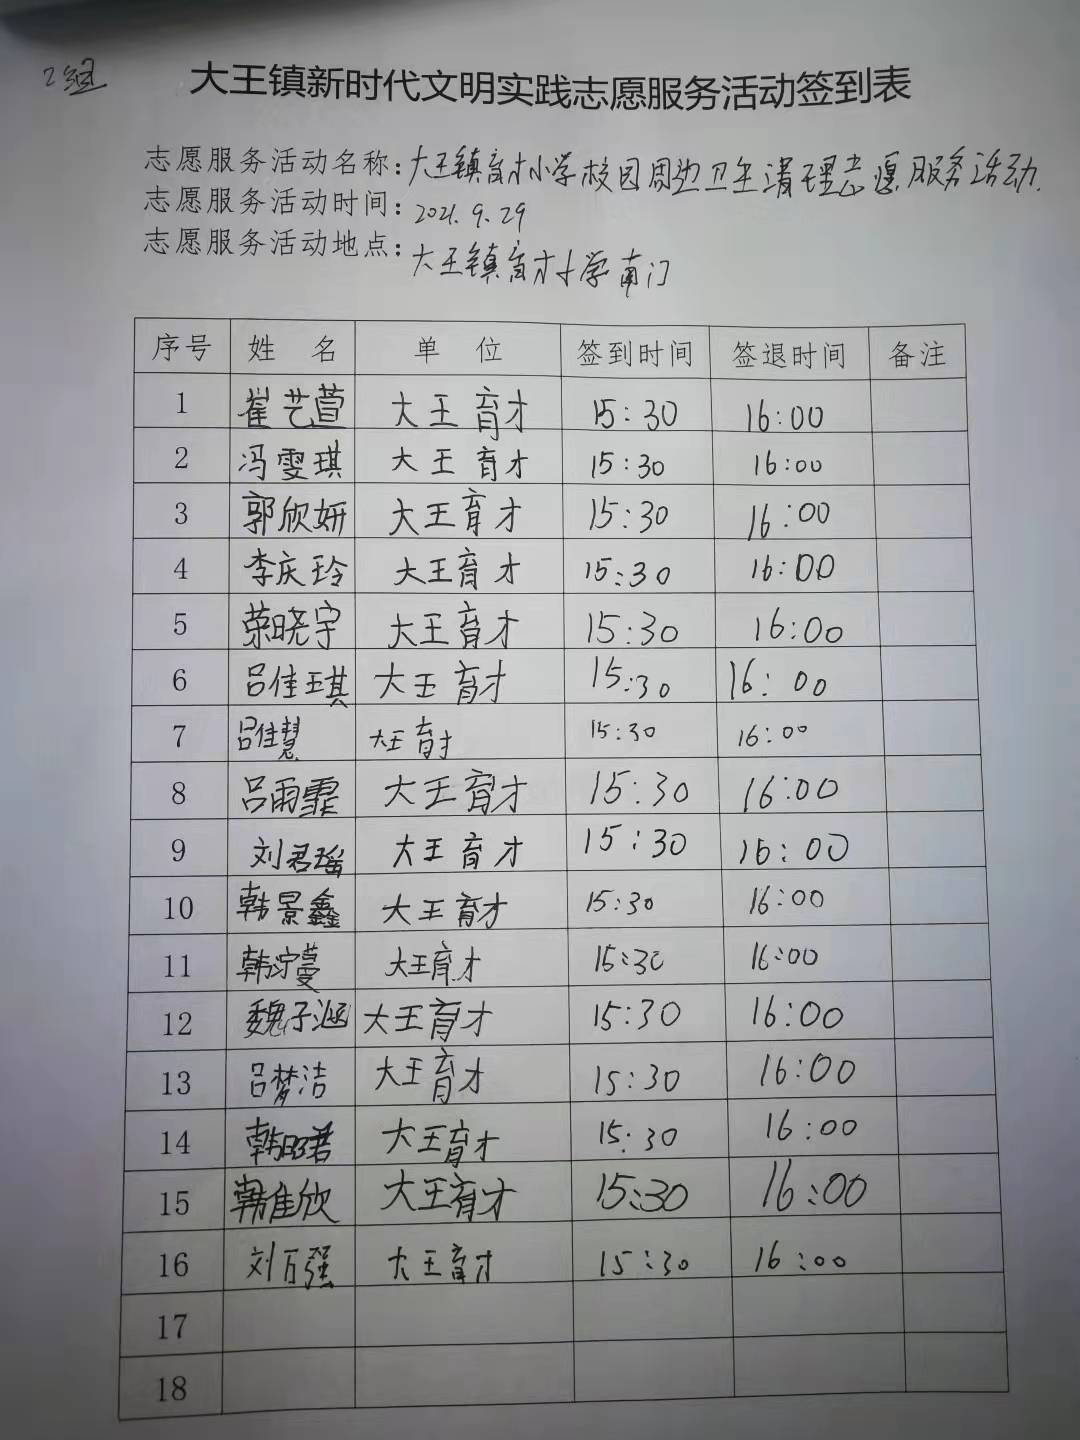 2组
大王镇新时代文明实践志愿服务活动签到表
志愿服务活动名称：大王镇育才小学校园周边卫生清理志愿服务活动.
志愿服务活动时间：2021.9.29
志愿服务活动地点：大王镇育才小学南门
序号 姓 名 单 位 签到时间 签退时间 备注
1 崔艺萱 大王育才 15:30 16:00
2 冯雯琪 大王育才 15:30 16:00
3 郭欣妍 大王育才 15:30 16:00
4 李庆玲 大王育才 15:30 16:00
5 荣晓宇 大王育才 15:30 16:00
6 吕佳琪 大王育才 15:30 16:00
7 吕佳慧 大王育才 15:30 16:00
8 吕雨霏 大王育才 15:30 16:00
9 刘君瑶 大王育才 15:30 16:00
10 韩景鑫 大王育才 15:30 16:00
11 韩泞蔓 大王育才 15:30 16:00
12 魏子涵 大王育才 15:30 16:00
13 吕梦洁 大王育才 15:30 16:00
14 韩昭君 大王育才 15:30 16:00
15 韩佳欣 大王育才 15:30 16:00
16 刘万强 大王育才 15:30 16:00
17
18